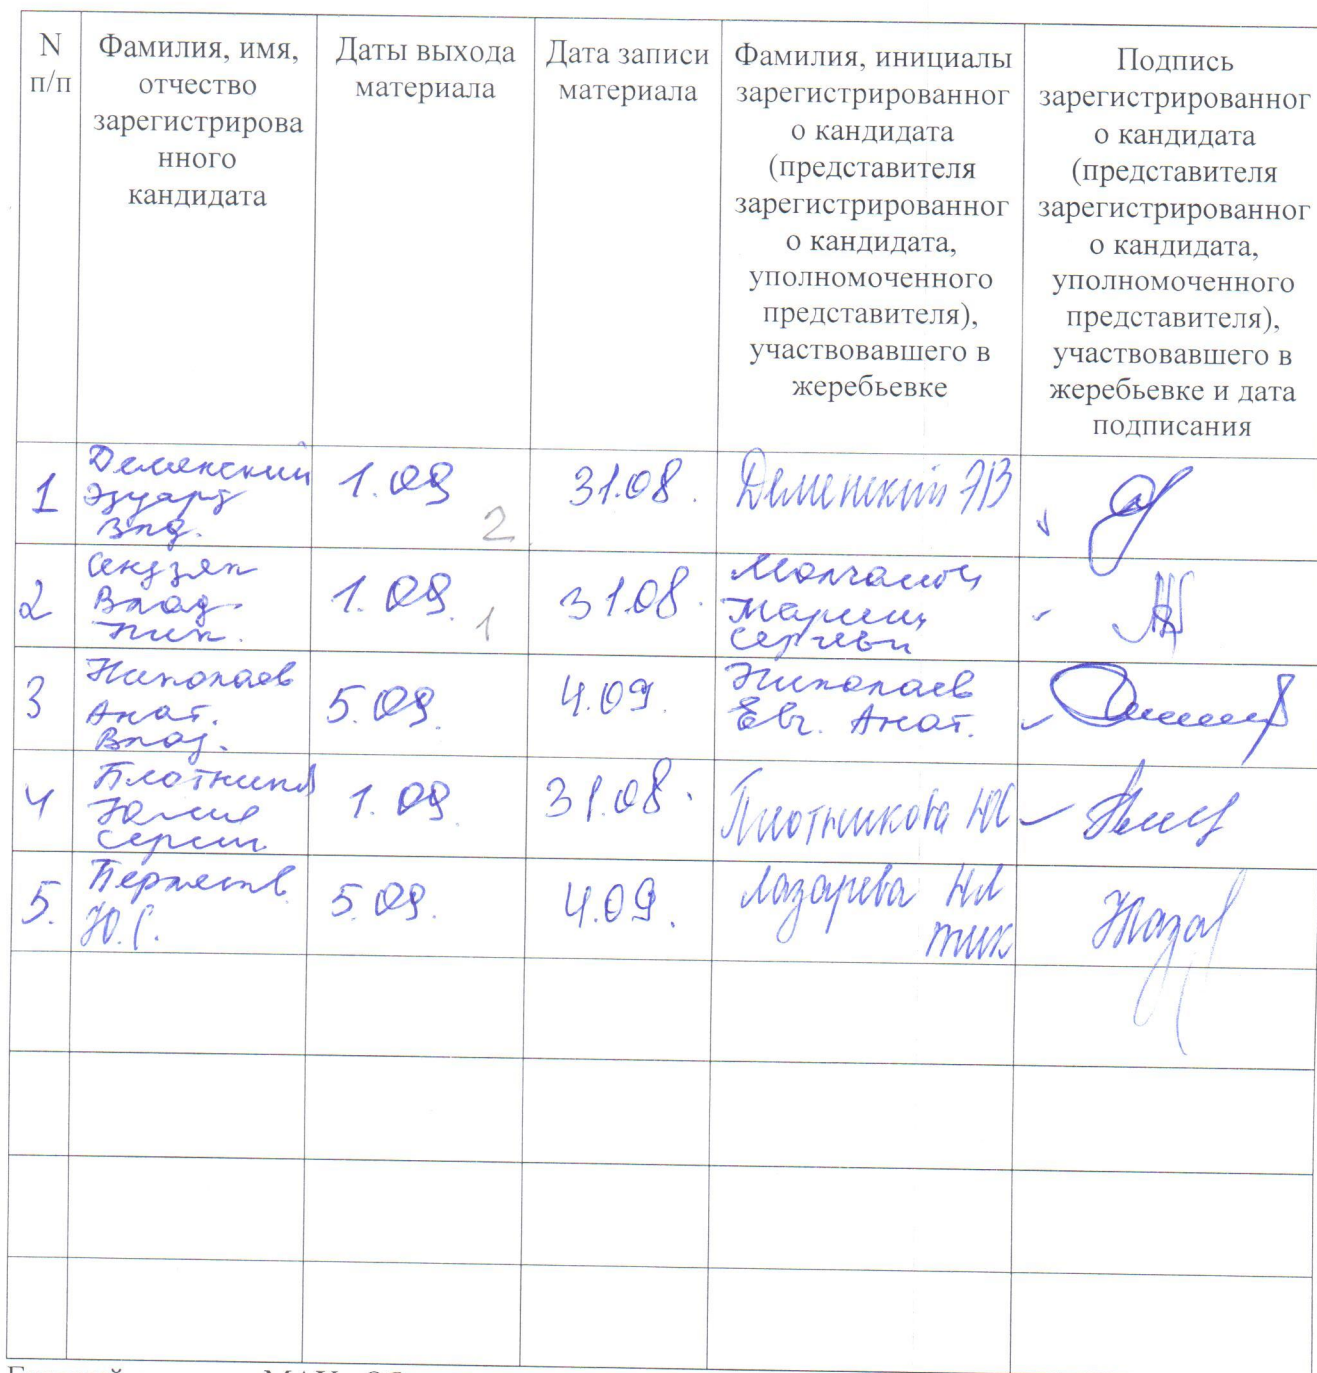 N п/п
Фамилия, имя,
отчество
зарегистрирова
нного
кандидата
Даты выхода
материала
Дата записи
материала
Фамилия, инициалы
зарегистрированног
о кандидата
(представителя
зарегистрированног
о кандидата,
уполномоченного
представителя),
участвовавшего в
жеребьевке
Подпись
зарегистрированног
о кандидата
(представителя
зарегистрированног
о кандидата,
уполномоченного
представителя),
участвовавшего в
жеребьевке и дата
подписания
1
Деменский
Эдуард
Влад.
1.09
2
31.08.
Деменский ЭВ
2
Влад.
1.09.
1
31.08.
3
Николаев
Анат.
Влад.
5.09.
4.09.
Николаев
Евг. Анат.
4
Юлия
1.09.
31.08.
Плотникова ЮС
5.
Ю.С.
5.09.
4.09.
Лазарева НЛ
тик